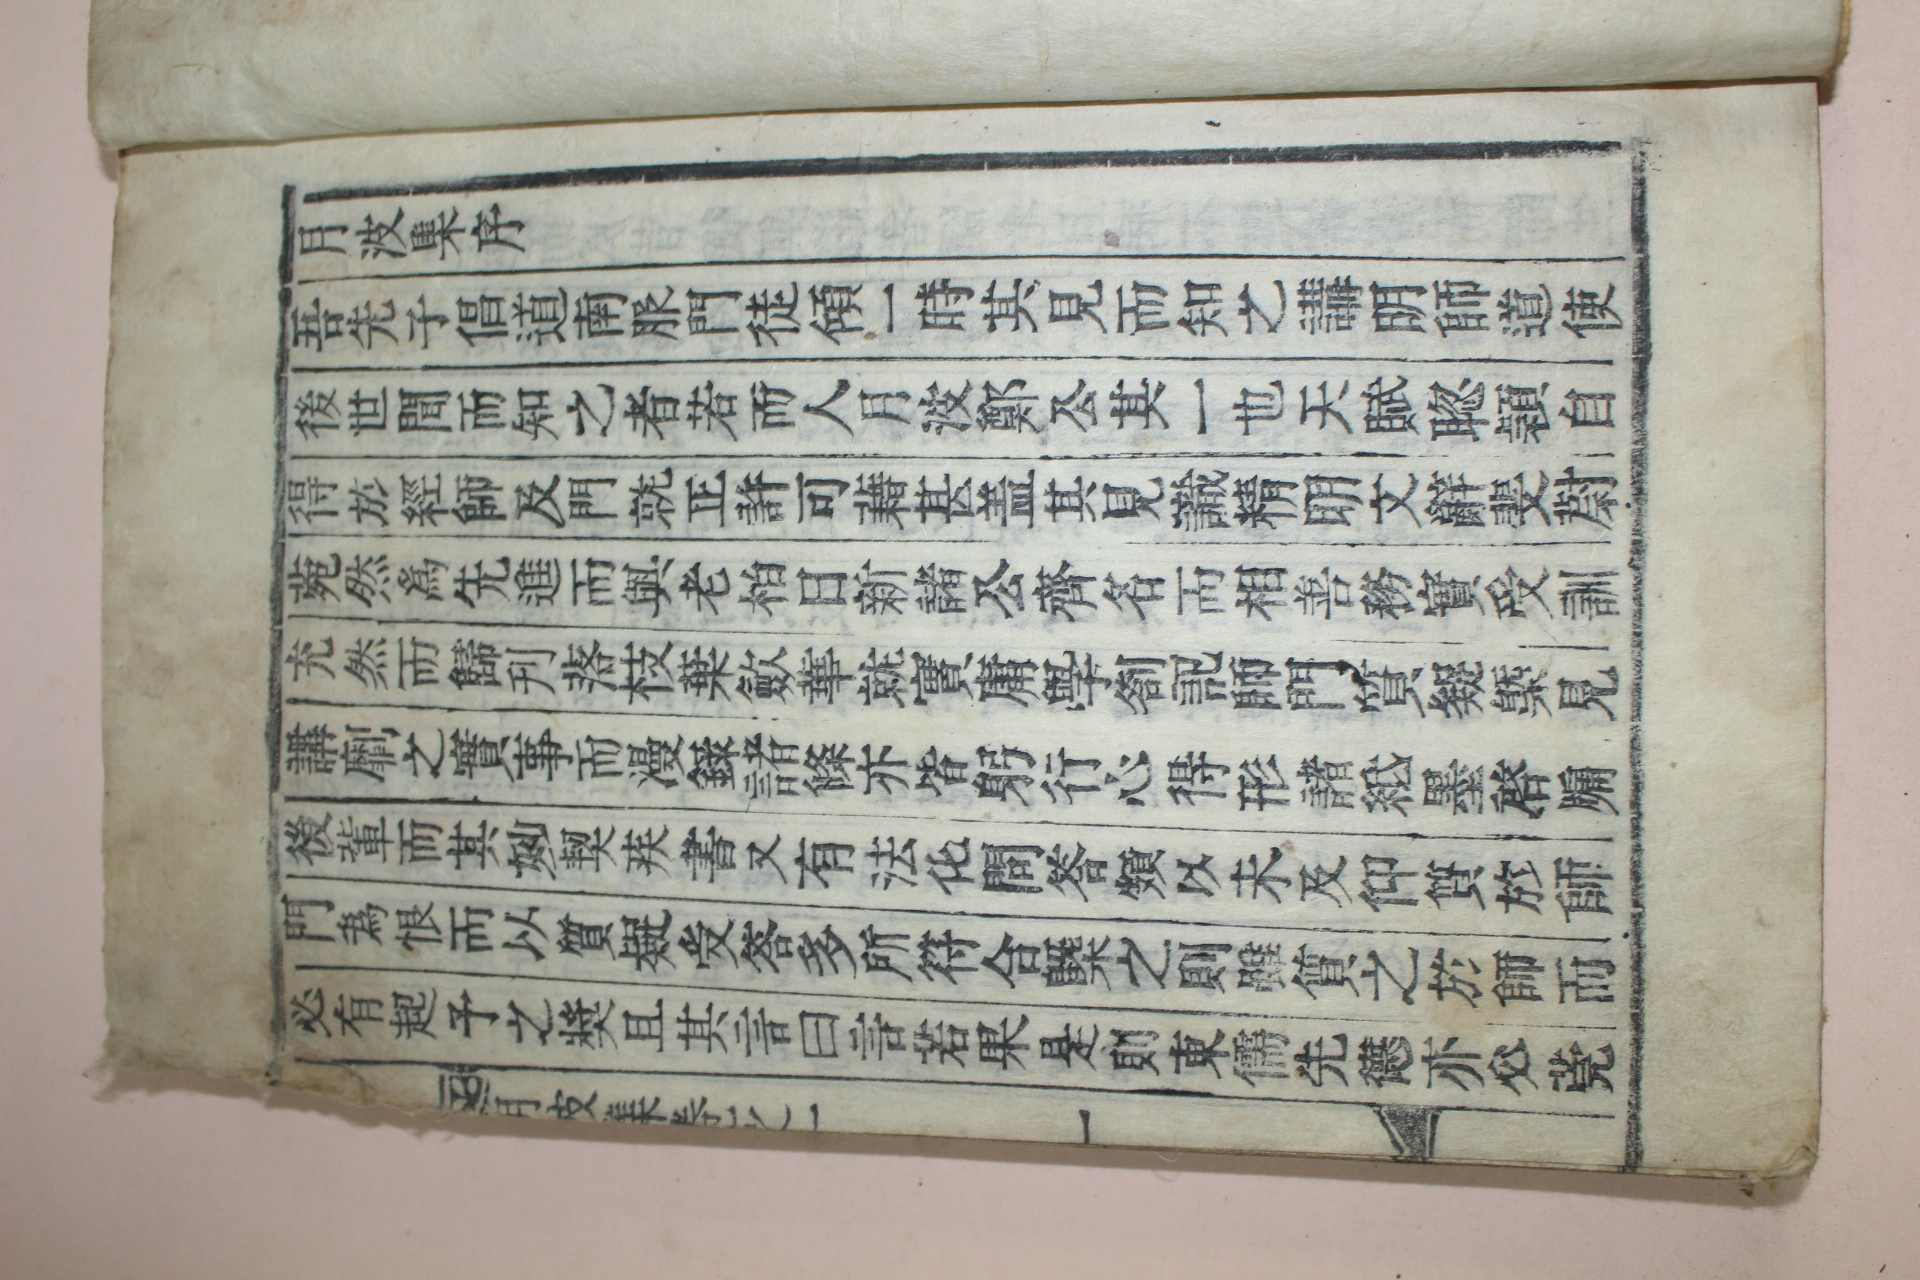 月波集序
吾先子倡道南服門徒傾一時其見而知之講明師道使
後世聞而知之者若而人月波鄭公其一也天賦聡穎自
得於經師及門就正許可藉甚盖其見識精明文辭斐蔚
菀然為先進而與老栢日新諸公齊名而相善務實受訓
尤然而歸刊落枝葉斂華就實庸學劄記師門質疑槩見
講劘之實事而漫錄諸條亦皆躬行心得形諸紙墨啓牖
後輩而其妙契疾書又有法化問答類以未及仰質於師
門為恨而以質疑受答多所符合槩之則雖質之於師而
必有起予之奬且其言曰言若果是則東儒先德亦必莞
月波集卷之一
一